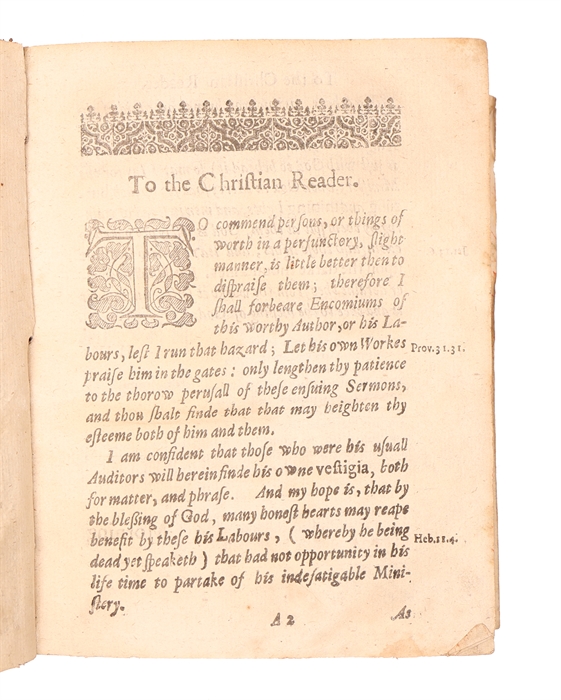 To the Chriſtian Reader.
TO commend perſons, or things of
worth in a perfunctery, ſlight
manner, is little better then to
diſpraiſe them; therefore I
ſhall forbeare Encomiums of
this worthy Author, or his La-
bours, leſt I run that hazard; Let his own Workes
praiſe him in the gates: only lengthen thy patience
to the thorow peruſall of theſe enſuing Sermons,
and thou ſhalt finde that that may heighten thy
eſteeme both of him and them.
Prov.31.31.
I am confident that thoſe who were his uſuall
Auditors will herein finde his owne veſtigia, both
for matter, and phraſe. And my hope is, that by
the bleſſing of God, many honeſt hearts may reape
benefit by theſe his Labours, (whereby he being
dead yet ſpeaketh) that had not opportunity in his
life time to partake of his indefatigable Mini-
ſtery.
Heb.11.4.
A 2
As